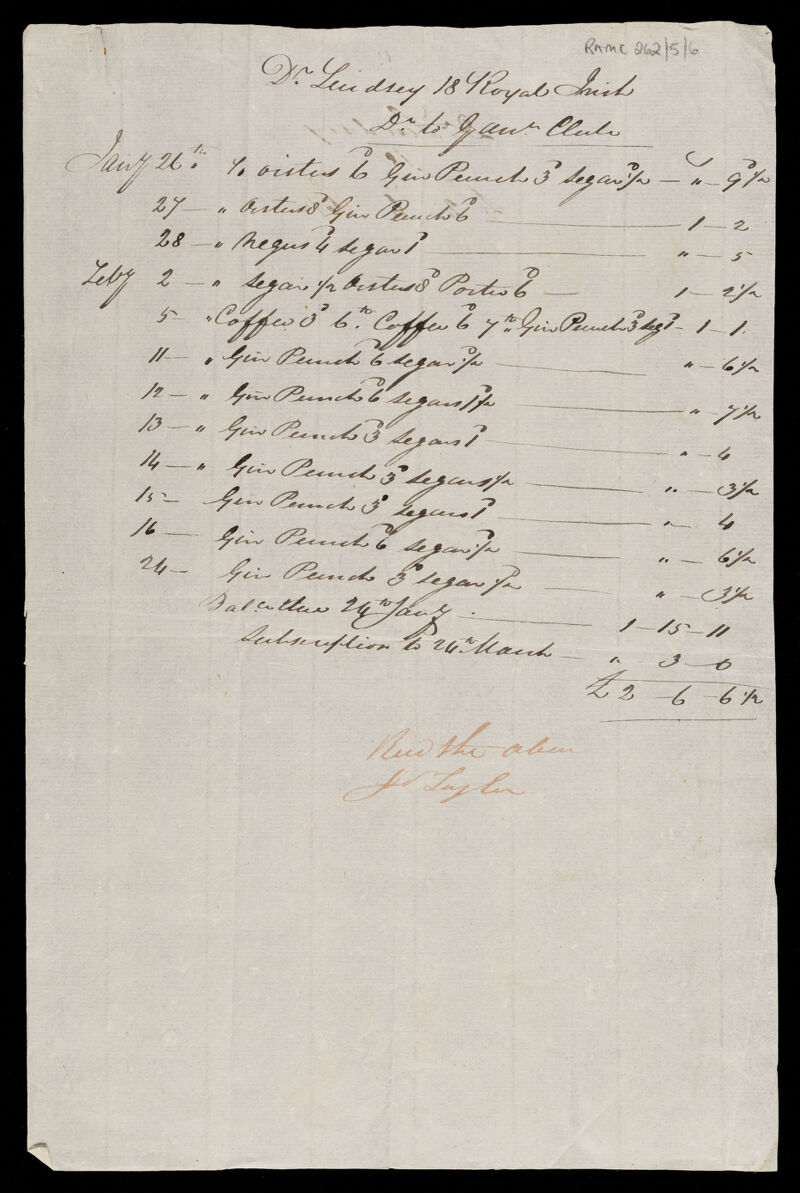 RAMC 262/5/6
Dr Lindsey 18 Royal Irish
Dr to Garn Club
Jany 26th To oistus 6d Gin Punch 3d segar ½ — " — 9½
27 — " Oistus 8d Gin Punch 6d — 1 — 2
28 — " Negus 4d segar 1d — " — 5
Feby 2 — " segar ½ Oistus 8d Porter 6d — 1 — 2½
5 — " Coffee 3d 6th Coffee 6d 7th " Gin Punch 3d seg 1d — 1 — 1
11 — " Gin Punch 6d segar ½ — " — 6½
12 — " Gin Punch 6d segars 1½ — " — 7½
13 — " Gin Punch 3d segars 1d — " — 4
14 — " Gin Punch 3d segars ½ — " — 3½
15 — Gin Punch 3d segars 1d — " — 4
16 — Gin Punch 6d segar ½ — " — 6½
24 — Gin Punch 3d segar ½ — " — 3½
Balce due 24th Jany — 1 — 15 — 11
Subscription to 24th March — " 3 — 0
£ 2 — 6 — 6½
Recd the above
Taylor